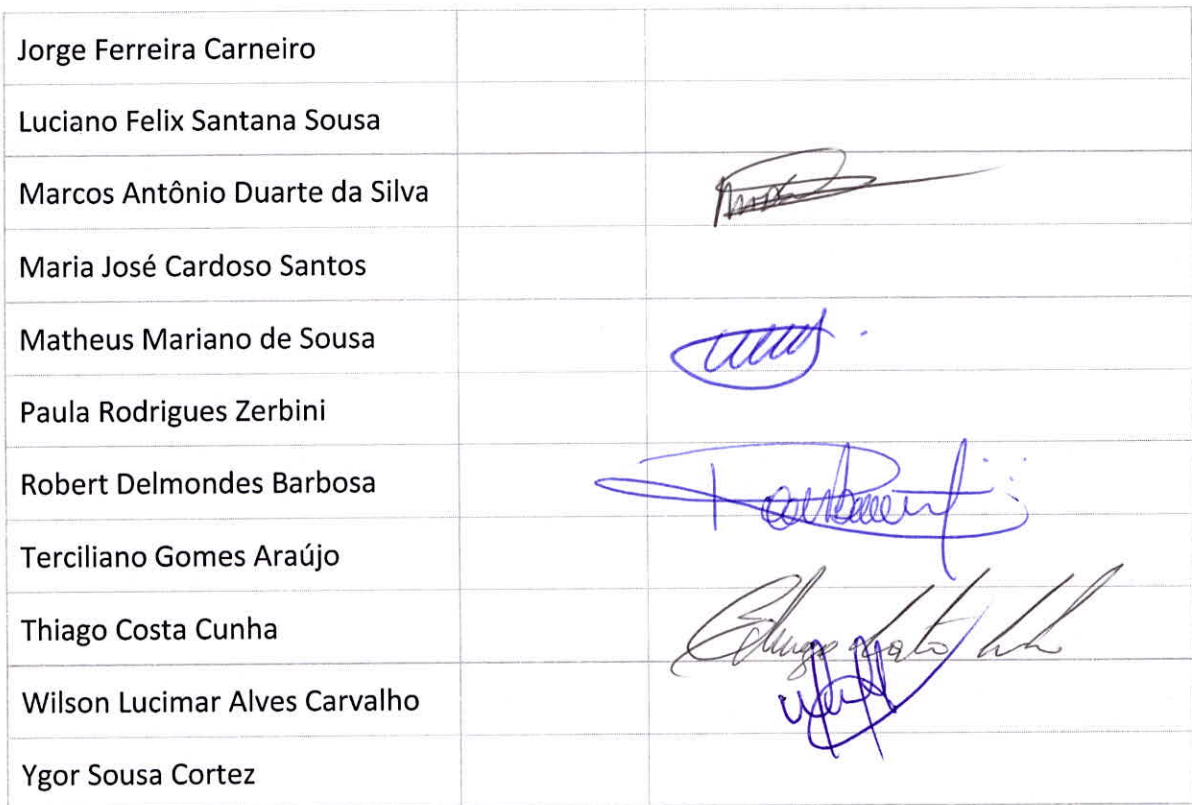 Jorge Ferreira Carneiro
Luciano Felix Santana Sousa
Marcos Antônio Duarte da Silva
Maria José Cardoso Santos
Matheus Mariano de Sousa
Paula Rodrigues Zerbini
Robert Delmondes Barbosa
Terciliano Gomes Araújo
Thiago Costa Cunha
Wilson Lucimar Alves Carvalho
Ygor Sousa Cortez